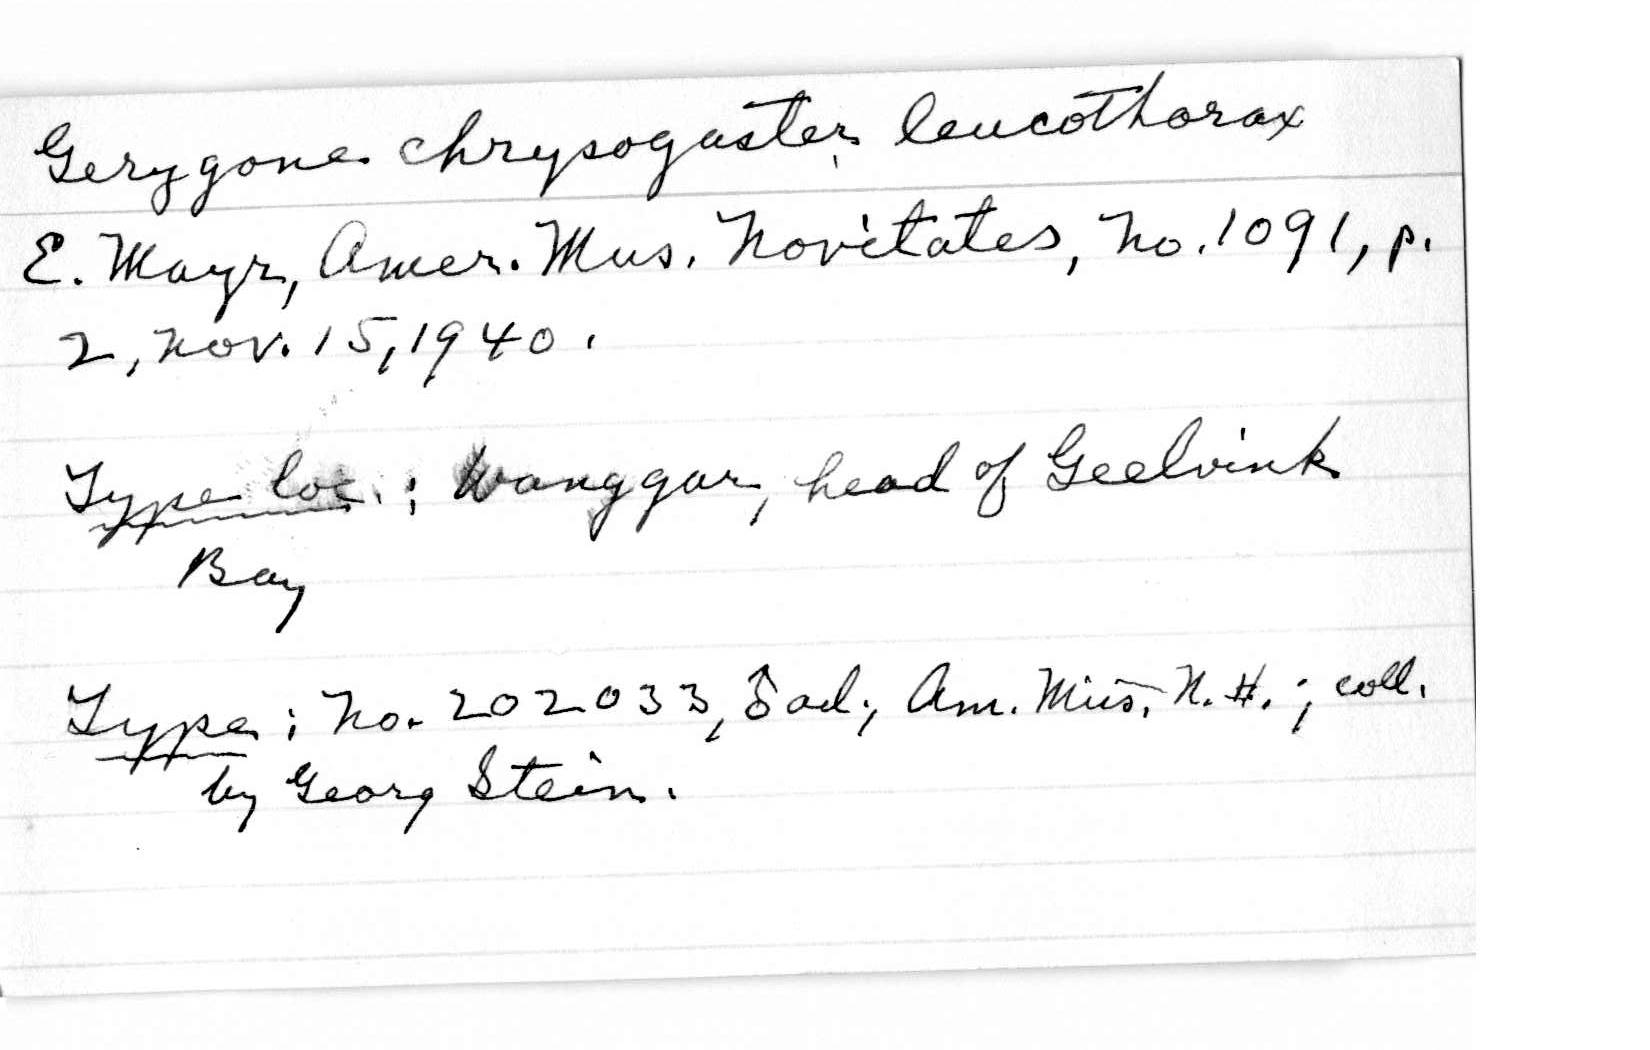 Gerygone chrysogaster leucothorax
E. Mayr, Amer. Mus. Novitates, No. 1091, p.
2, Nov. 15, 1940.
Type loc.: Wanggar, head of Geelvink
Bay
Type: No. 202033, ♂ ad., Am. Mus. N. H.; coll.
by Georg Stein.